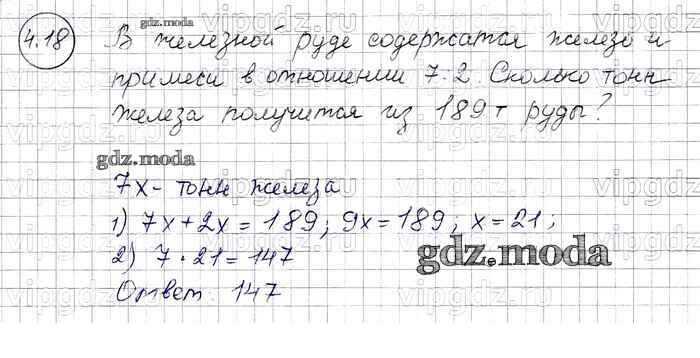 4.18 В железной руде содержатся железо и
примеси в отношении 7:2. Сколько тонн
железа получится из 189 т руды?
gdz.moda
gdz.moda
7x - тонн железа
1) 7x + 2x = 189; 9x = 189; x = 21;
2) 7 · 21 = 147
gdz.moda
Ответ. 147